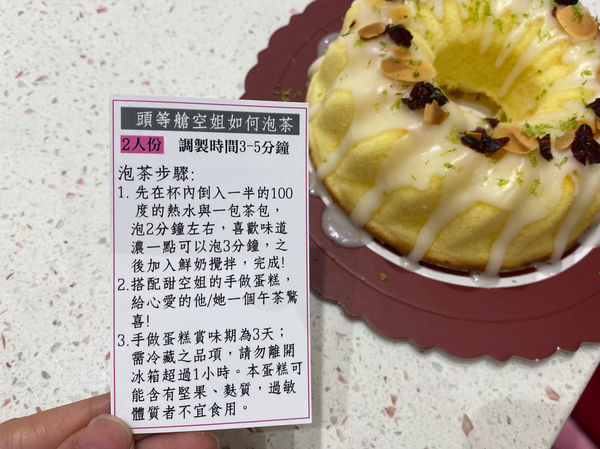 頭等艙空姐如何泡茶
2人份 調製時間3-5分鐘
泡茶步驟:
1. 先在杯內倒入一半的100
度的熱水與一包茶包，
泡2分鐘左右，喜歡味道
濃一點可以泡3分鐘，之
後加入鮮奶攪拌，完成!
2. 搭配甜空姐的手做蛋糕，
給心愛的他/她一個午茶驚
喜!
3. 手做蛋糕賞味期為3天；
需冷藏之品項，請勿離開
冰箱超過1小時。本蛋糕可
能含有堅果、麩質，過敏
體質者不宜食用。